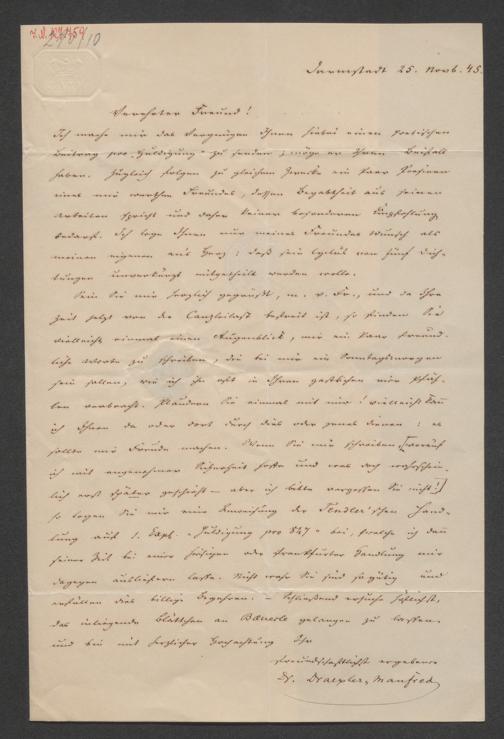 Darmstadt 25. Novb. 45.
Verehrter Freund!
Ich mache mir das Vergnügen Ihnen hiebei einen poetischen
Beitrag pro „Huldigung“ zu senden; möge er Ihren Beifall
haben. Zugleich folgen zu gleichem Zwecke ein paar Poesieen
eines mir werthen Freundes, dessen Begabtheit aus seinen
Arbeiten spricht und daher keiner besonderen Empfehlung
bedarf. Ich lege Ihnen nur meines Freundes Wunsch als
meinen eigenen ans Herz: daß sein Cyclus von fünf Dich-
tungen unverkürzt mitgetheilt werden wolle.
Sein Sie mir herzlich gegrüßt, m. v. Fr., und da Ihre
Zeit jetzt von der Canzleilast befreit ist, so finden Sie
vielleicht einmal einen Augenblick, mir ein paar freund-
liche Worte zu schreiben, die bei mir ein Sonntagsmorgen
sein sollen, wie ich ihn oft in Ihren gastlichen vier Pfäh-
len verbracht. Plaudern Sie einmal mit mir! vielleicht kann
ich Ihnen da oder dort durch dies oder jenes dienen: es
sollte mir Freude machen. Wenn Sie mir schreiben [worauf
ich mit angenehmer Sicherheit hoffe und was doch wahrschein-
lich erst später geschieht – aber ich bitte vergessen Sie nicht!]
so legen Sie mir eine Anweisung der Tendler'schen Hand-
lung auf 1. Expl. „Huldigung pro 847“ bei, welche ich dann
seiner Zeit bei einer hiesigen oder Frankfurter Handlung mir
dagegen ausliefern lasse. Nicht wahr Sie sind so gütig und
erfüllen dies billige Begehren? – Schließend ersuche höflichst,
das inliegende Blättchen an Bäuerle gelangen zu lassen.
und bin mit herzlicher Hochachtung Ihr
freundschaftlichst ergebener
Dr. Draexler-Manfred